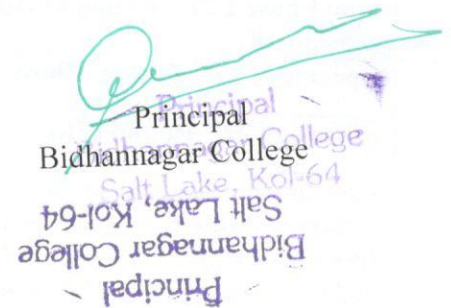 Principal
Bidhannagar College
Principal
Bidhannagar College
Salt Lake, Kol-64
Principal
Bidhannagar College
Salt Lake, Kol-64